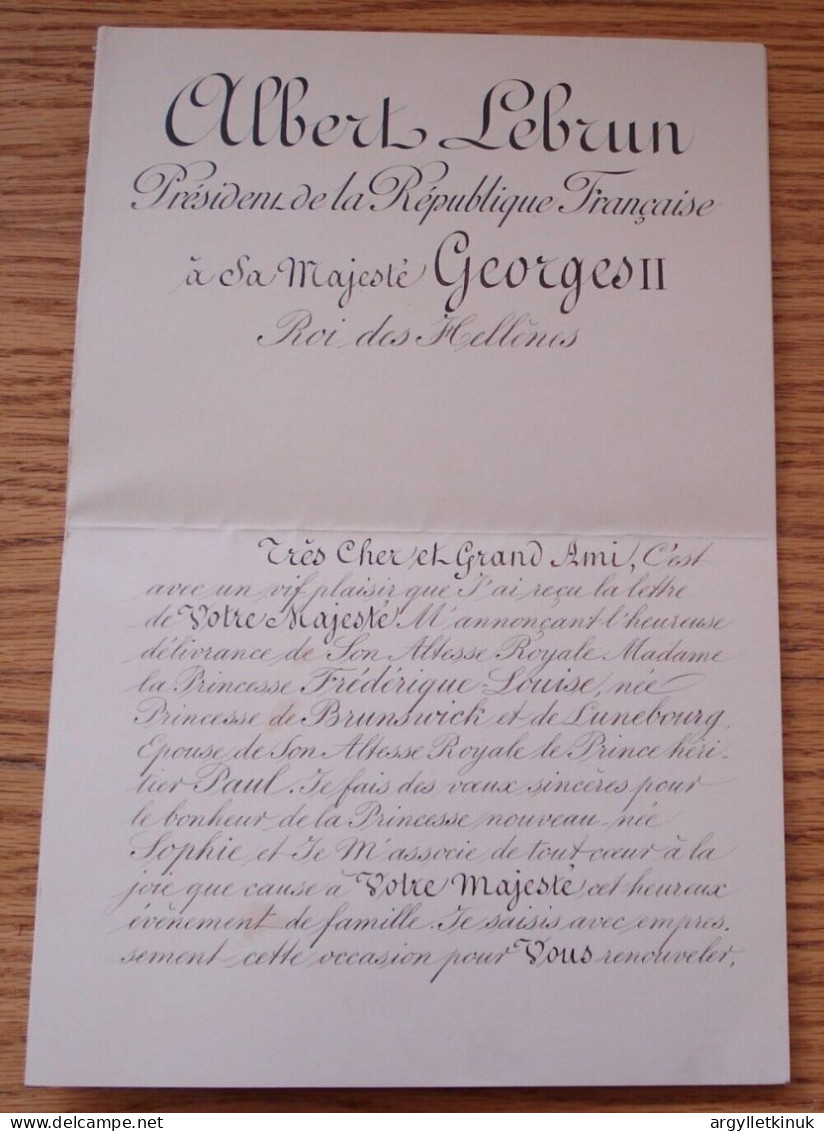 Albert Lebrun
Président de la République Française
à Sa Majesté Georges II
Roi des Hellènes
Très Cher et Grand Ami, C'est
avec un vif plaisir que J'ai reçu la lettre
de Votre Majesté M'annonçant l'heureuse
délivrance de Son Altesse Royale Madame
la Princesse Frédérique-Louise, née
Princesse de Brunswick et de Lunebourg,
Epouse de Son Altesse Royale le Prince héri-
tier Paul. Je fais des vœux sincères pour
le bonheur de la Princesse nouveau-née
Sophie et Je M'associe de tout cœur à la
joie que cause à Votre Majesté cet heureux
évènement de famille. Je saisis avec empres-
sement cette occasion pour Vous renouveler,
argylletkinuk
delcampe.net